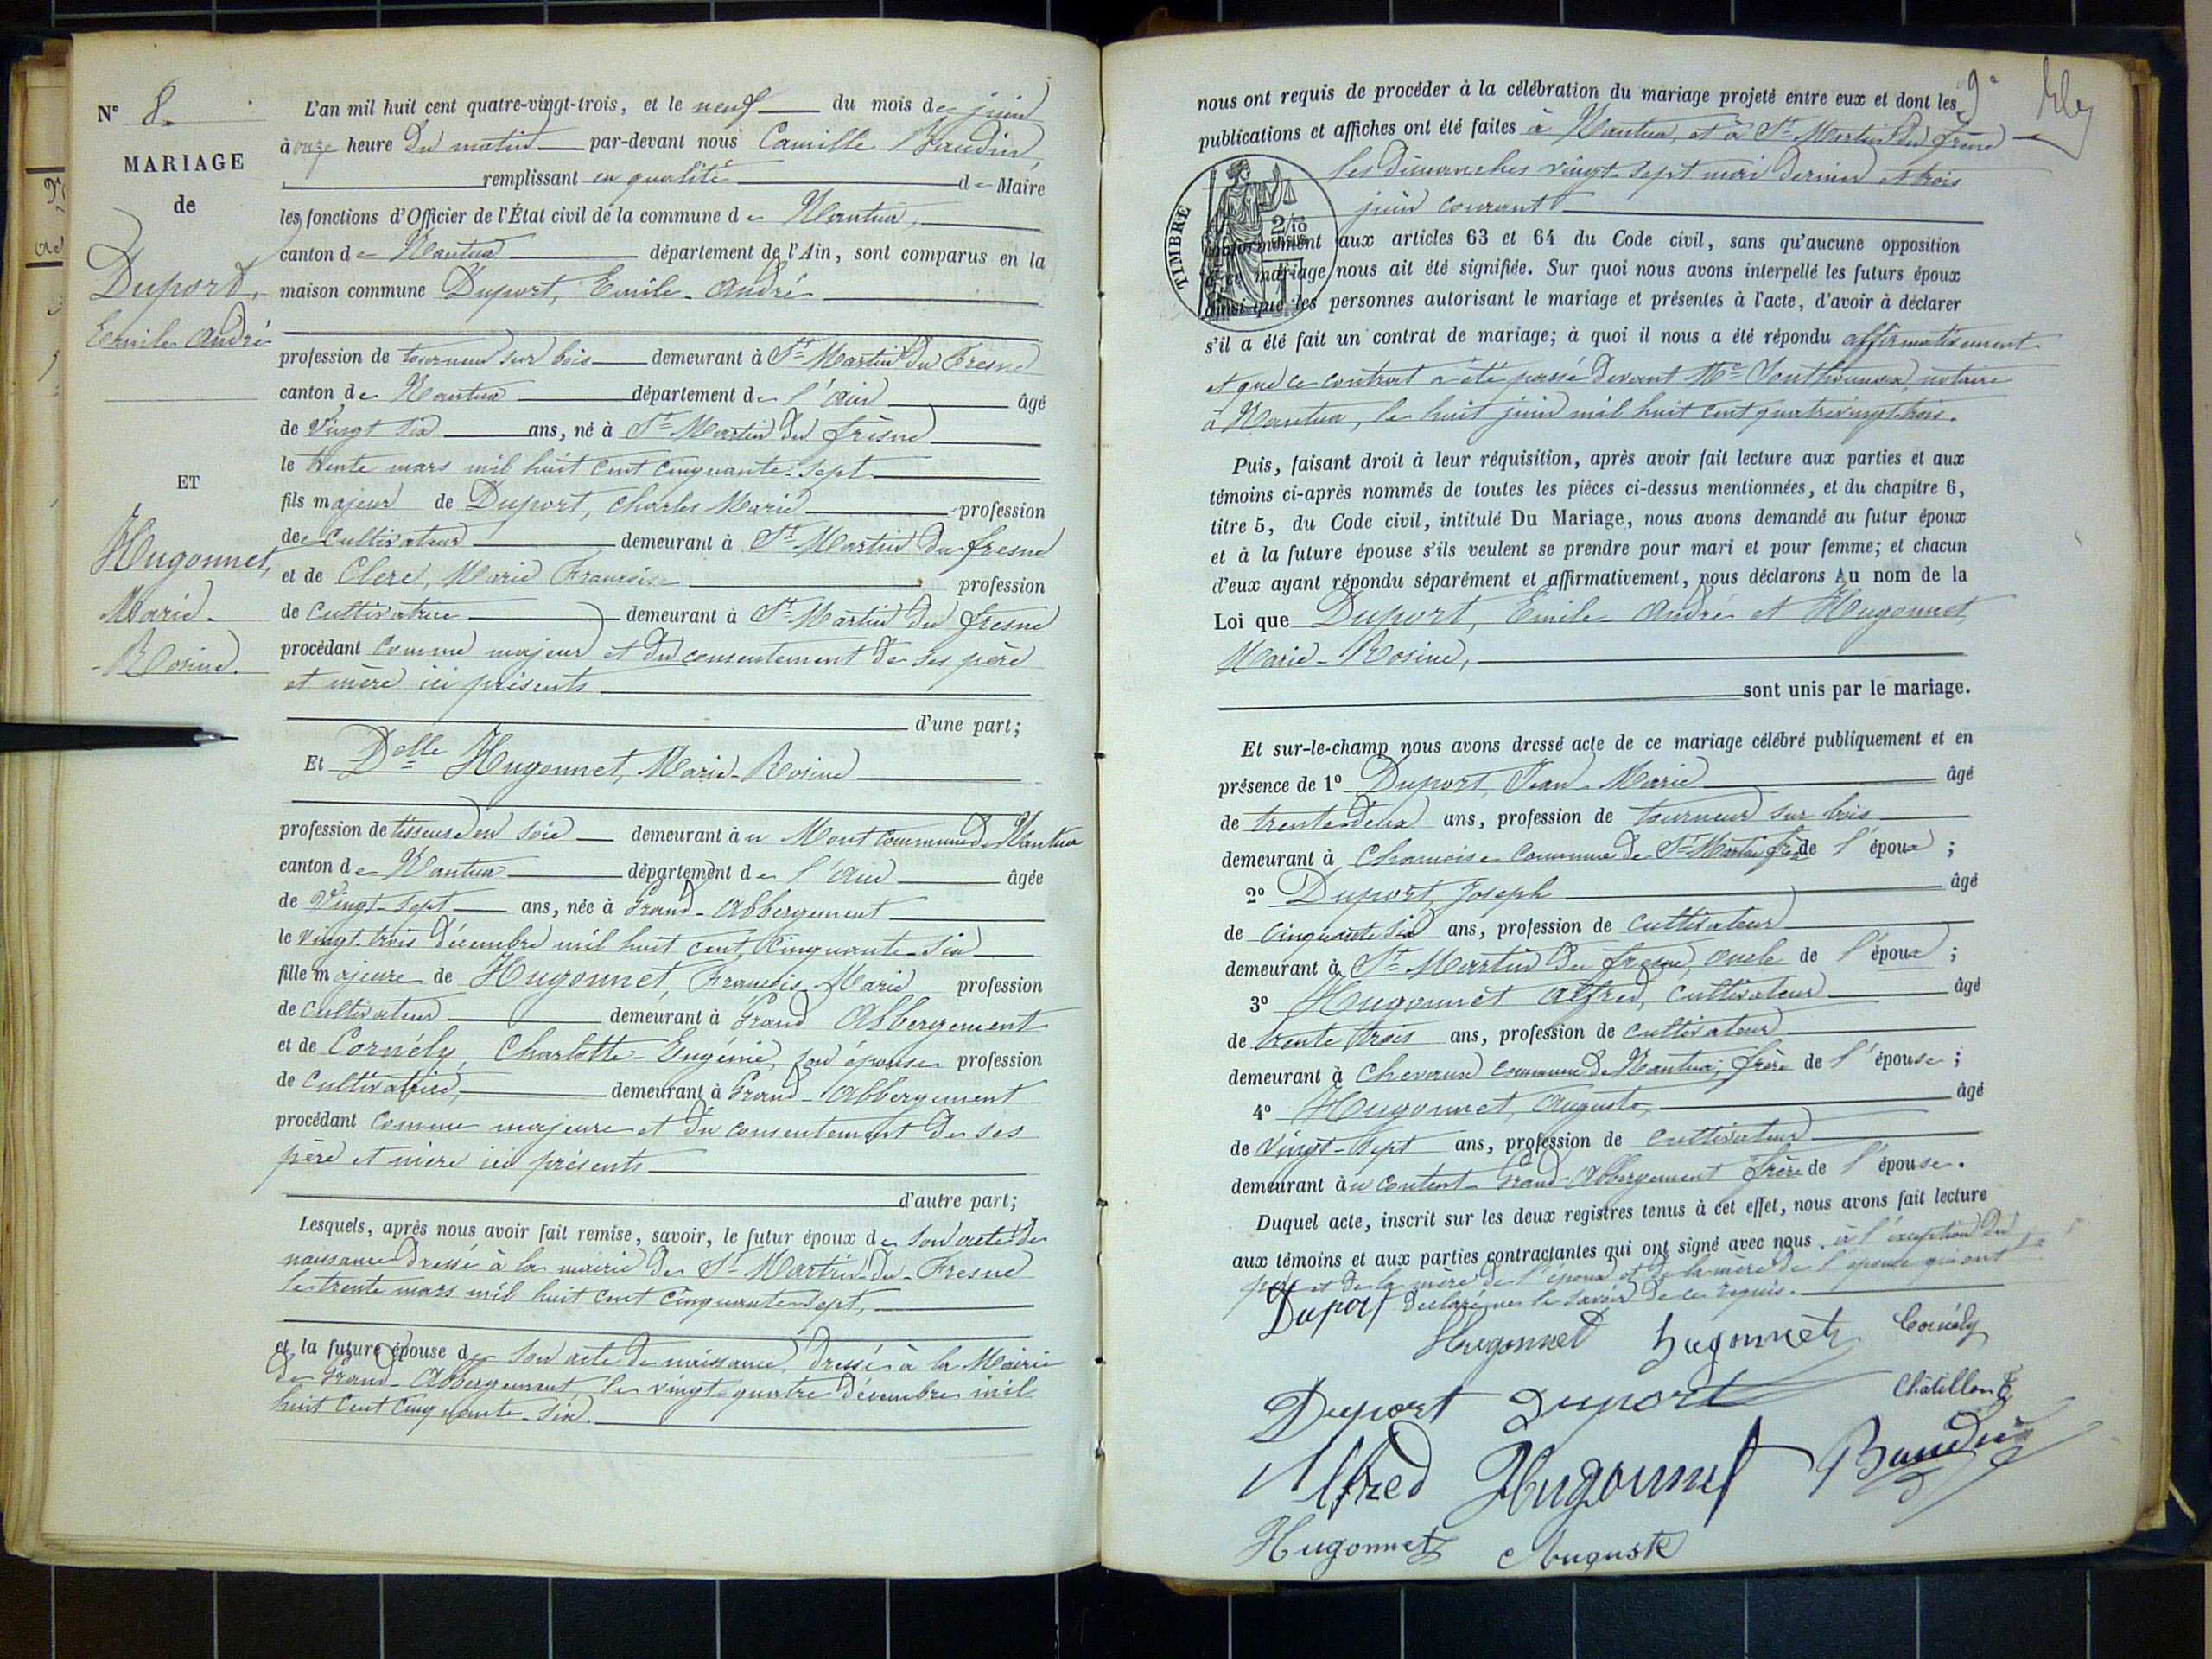 N° 8.
MARIAGE
de
Duport,
Emile André
ET
Hugonnet,
Marie-
Rosine.
L'an mil huit cent quatre-vingt-trois, et le neuf du mois de juin
à onze heure du matin par-devant nous Camille Baudin,
remplissant en qualité de Maire
les fonctions d'Officier de l'État civil de la commune de Nantua,
canton de Nantua département de l'Ain, sont comparus en la
maison commune Duport, Emile-André
profession de tourneur sur bois demeurant à St Martin du Fresne
canton de Nantua département de l'Ain âgé
de Vingt six ans, né à St Martin du fresne
le trente mars mil huit cent cinquante-sept
fils majeur de Duport, Charles Marie profession
de cultivateur demeurant à St Martin du fresne
et de Clerc, Marie Françoise profession
de cultivatrice demeurant à St Martin du fresne
procédant comme majeur et du consentement de ses père
et mère ici présents
d'une part;
Et Delle Hugonnet, Marie-Rosine
profession de tisseuse en soie demeurant à u Mont commune de Nantua
canton de Nantua département de l'Ain âgée
de Vingt-sept ans, née à Grand-Abbergement
le vingt-trois décembre mil huit cent cinquante-six
fille majeure de Hugonnet, François-Marie profession
de cultivateur demeurant à Grand Abbergement
et de Cornély, Charlotte-Eugénie, son épouse profession
de cultivatrice, demeurant à Grand-Abbergement
procédant comme majeure et du consentement de ses
père et mère ici présents
d'autre part;
Lesquels, après nous avoir fait remise, savoir, le futur époux de son acte de
naissance dressé à la mairie de St-Martin-du-Fresne
le trente mars mil huit cent cinquante-sept,
et la future épouse de son acte de naissance, dressé à la Mairie
de Grand-Abbergement, le vingt-quatre décembre mil
huit cent cinquante-six.
9e
nous ont requis de procéder à la célébration du mariage projeté entre eux et dont les
publications et affiches ont été faites à Nantua, et à St Martin du fresne
les dimanches vingt-sept mai dernier et trois
juin courant
TIMBRE
2/10
EN SUS
conformément aux articles 63 et 64 du Code civil, sans qu'aucune opposition
à ce mariage nous ait été signifiée. Sur quoi nous avons interpellé les futurs époux
ainsi que les personnes autorisant le mariage et présentes à l'acte, d'avoir à déclarer
s'il a été fait un contrat de mariage; à quoi il nous a été répondu affirmativement
et que ce contrat a été passé devant Me notaire
à Nantua, le huit juin mil huit cent quatrevingt-trois.
Puis, faisant droit à leur réquisition, après avoir fait lecture aux parties et aux
témoins ci-après nommés de toutes les pièces ci-dessus mentionnées, et du chapitre 6,
titre 5, du Code civil, intitulé Du Mariage, nous avons demandé au futur époux
et à la future épouse s'ils veulent se prendre pour mari et pour femme; et chacun
d'eux ayant répondu séparément et affirmativement, nous déclarons Au nom de la
Loi que Duport, Emile-André et Hugonnet
Marie-Rosine,
sont unis par le mariage.
Et sur-le-champ nous avons dressé acte de ce mariage célébré publiquement et en
présence de 1° Duport, Jean-Marie âgé
de trente-deux ans, profession de tourneur sur bois
demeurant à Chamoise commune de St Martin frère de l'époux;
2° Duport, Joseph âgé
de cinquante six ans, profession de cultivateur
demeurant à St Martin du fresne, oncle de l'époux;
3° Hugonnet Alfred, cultivateur âgé
de trente trois ans, profession de cultivateur
demeurant à Chevaux commune de Nantua, frère de l'épouse;
4° Hugonnet, Auguste, âgé
de Vingt-sept ans, profession de cultivateur
demeurant à Grand-Abbergement frère de l'épouse.
Duquel acte, inscrit sur les deux registres tenus à cet effet, nous avons fait lecture
aux témoins et aux parties contractantes qui ont signé avec nous, à l'exception du
père et de la mère de l'époux et de la mère de l'épouse qui ont
déclaré ne le savoir de ce requis.
Duport
Hugonnet Hugonnet Cornély
Duport Duport Châtillon E
Alfred Hugonnet Baudin
Hugonnet Auguste